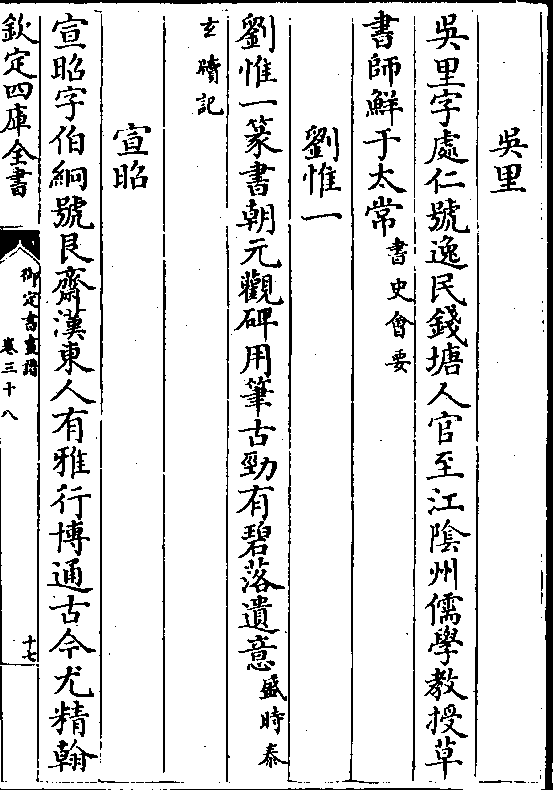 吳里
吳里字處仁號逸民錢塘人官至江陰州儒學教授草
書師鮮于太常書史會要
劉惟一
劉惟一篆書朝元觀碑用筆古勁有碧落遺意盛時泰
玄牘記
宣昭
宣昭字伯絅號艮齋漢東人有雅行博通古今尤精翰
欽定四庫全書
御定書畫譜
卷三十八
十七